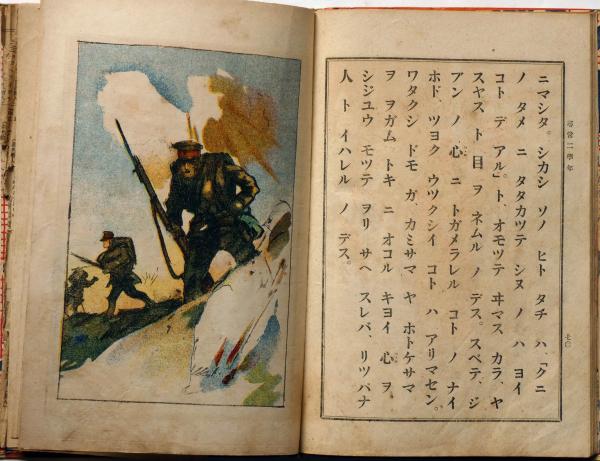 尋常二學年
七〇
ニマシタ。シカシ ソノ ヒト タチ ハ、「クニ
ノ タメ ニ タタカツテ シヌ ノ ハ ヨイ
コト デ アル」。ト、オモツテ ヰマス カラ、ヤ
スヤスト 目 ヲ ネムル ノ デス。スベテ、ジ
ブン ノ 心 ニ トガメラレル コト ノ ナイ
ホド、ツヨク ウツクシイ コト ハ アリマセン。
ワタクシ ドモ ガ、カミサマ ヤ ホトケサマ
ヲ ヲガム トキ ニ オコル キヨイ 心 ヲ、
シジユウ モツテ ヲリ サヘ スレバ、リツパナ
人 ト イハレル ノ デス。